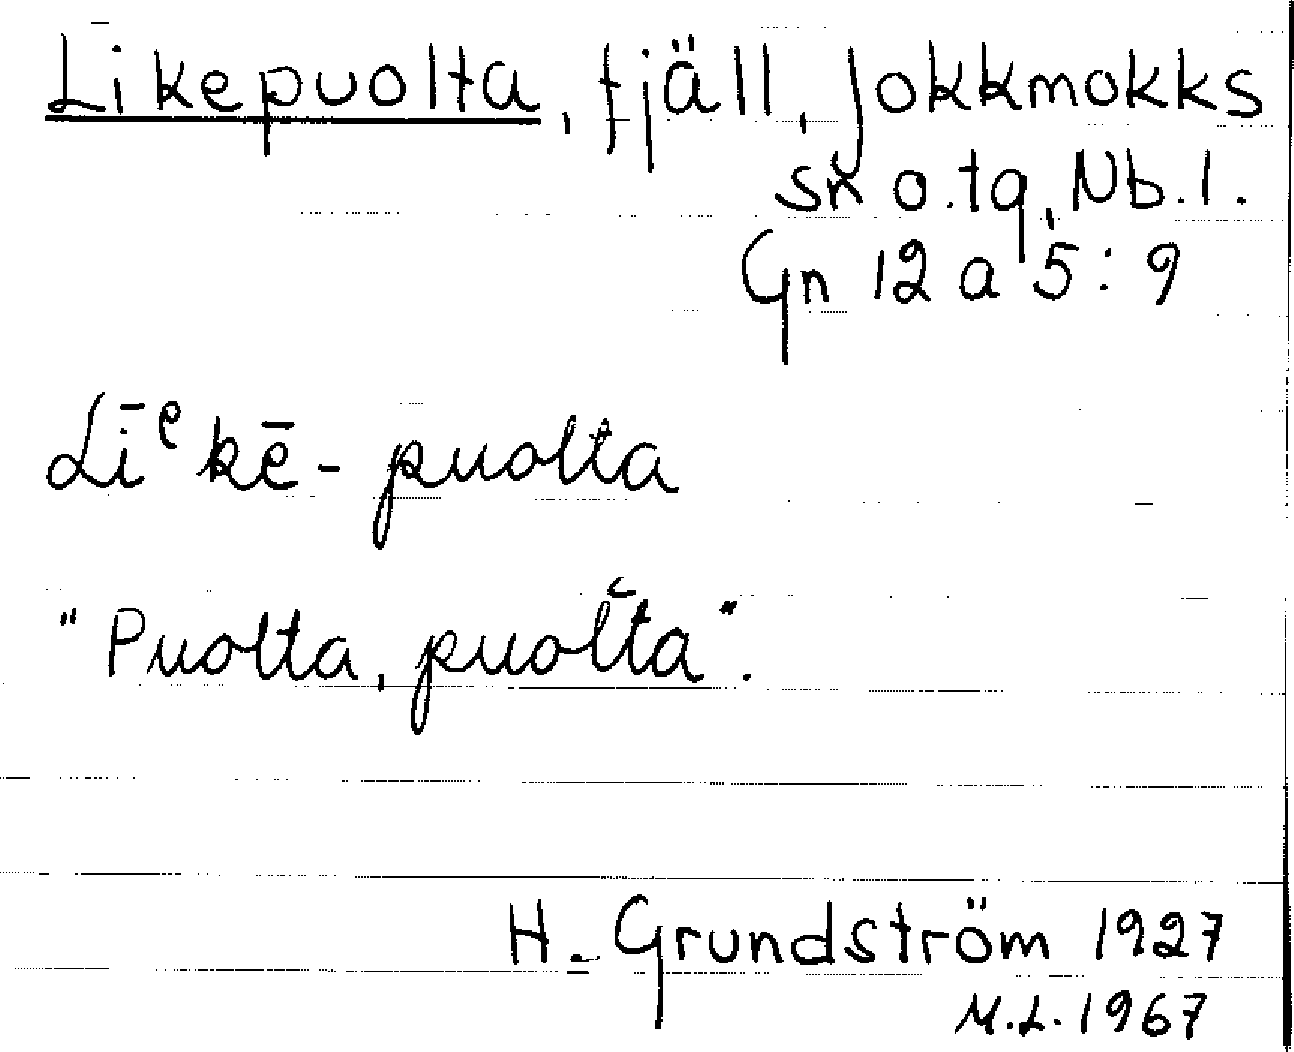 Likepuolta, fjäll, Jokkmokks
sn o. tg, Nb. l.
Gn 12 a 5:9
Līᵉkē-puolta
"Puolta, puoľta".
H. Grundström 1927
M.L. 1967